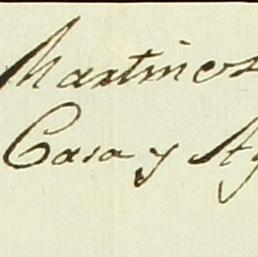 Martines
Casa y Ag